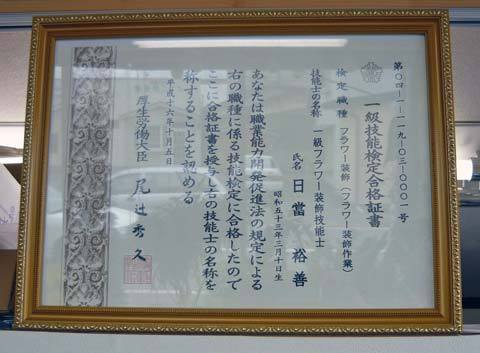 第〇四-一-一一九-〇三-〇〇〇一号
一級技能検定合格証書
検定職種 フラワー装飾(フラワー装飾作業)
技能士の名称 一級フラワー装飾技能士
氏名 日當 裕善
昭和五十三年三月十日生
あなたは職業能力開発促進法の規定による
右の職種に係る技能検定に合格したので
ここに合格証書を授与し右の技能士の名称を
称することを認める
平成十六年十月五日
厚生労働大臣 尾辻秀久